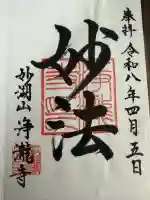 奉拝 令和八年四月五日
妙法
妙湖山 浄瀧寺